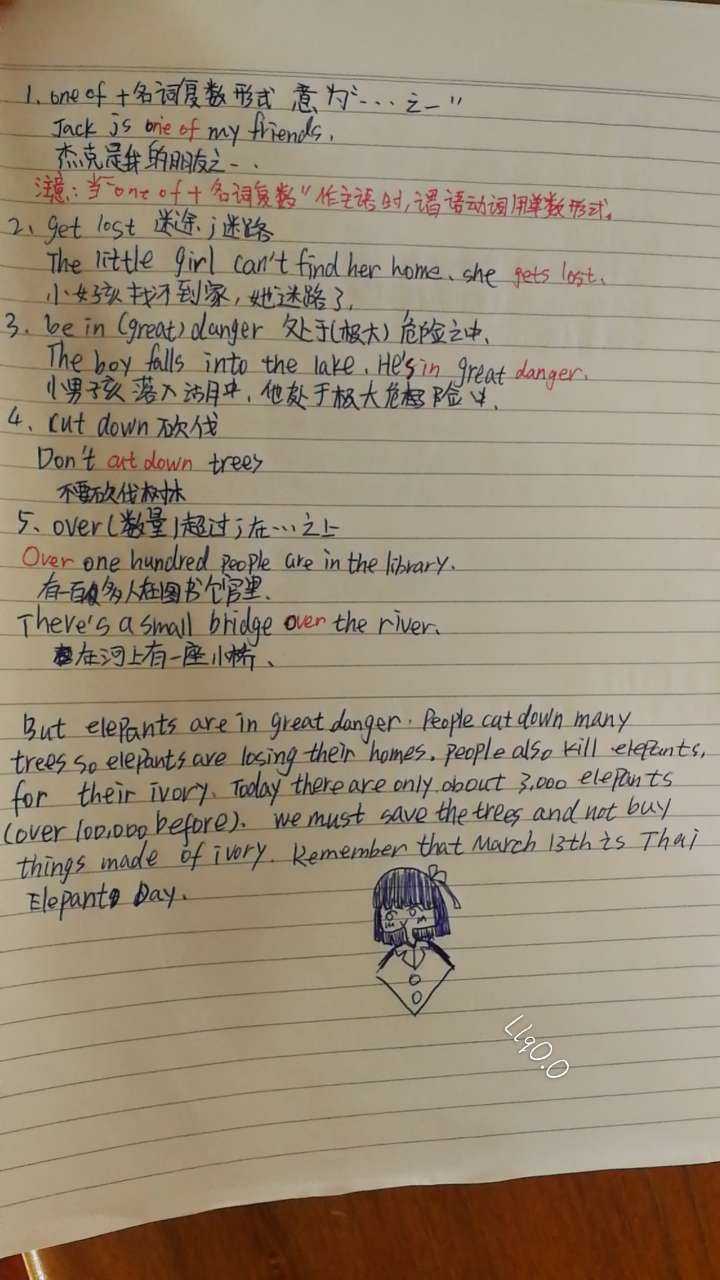 1、one of + 名词复数形式 意为“…之一”
Jack is one of my friends.
杰克是我的朋友之一.
注意:当“one of + 名词复数”作主语时,谓语动词用单数形式。
2、get lost 迷途;迷路
The little girl can't find her home. she gets lost.
小女孩找不到家,她迷路了.
3、be in (great) danger 处于(极大)危险之中.
The boy falls into the lake. He's in great danger.
小男孩落入湖中,他处于极大危险中.
4、cut down 砍伐
Don't cut down trees
不要砍伐树木
5、over (数量)超过;在…之上
Over one hundred people are in the library.
有一百多人在图书馆里.
There's a small bridge over the river.
在河上有一座小桥、
But elepants are in great danger. People cut down many
trees so elepants are losing their homes. people also kill elepants,
for their ivory. Today there are only about 3,000 elepants
(over 100,000 before). we must save the trees and not buy
things made of ivory. Remember that March 13th is Thai
Elepant Day.
Llq0.0